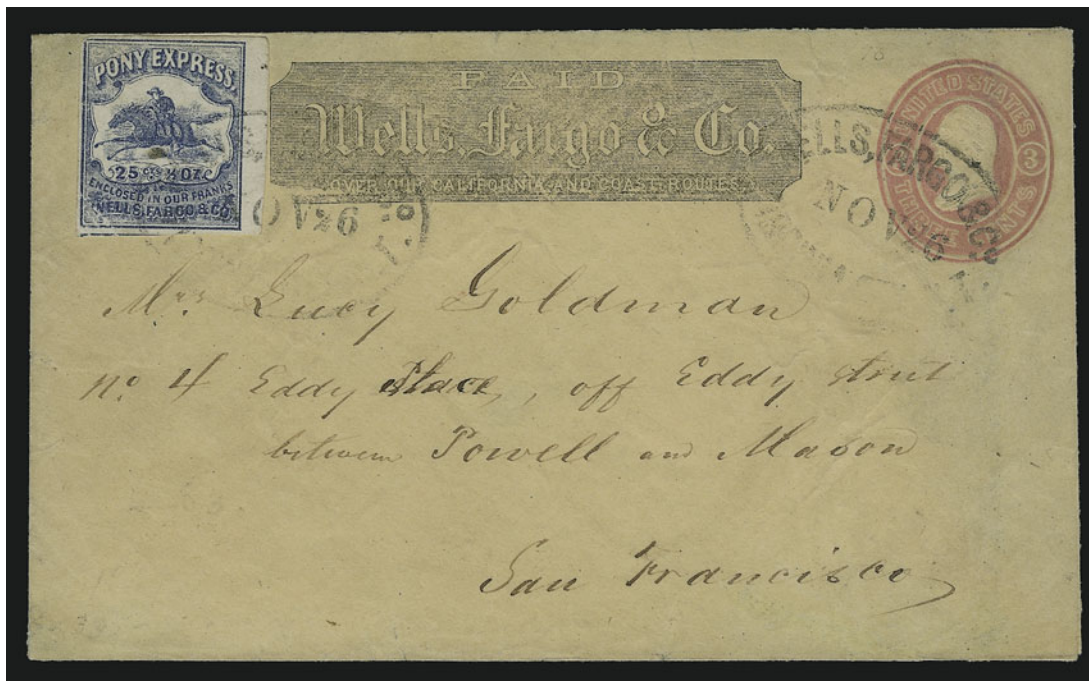 PONY EXPRESS.
25 ¢ ½ OZ.
ENCLOSED IN OUR FRANKS
WELLS, FARGO & CO.
PAID
Wells, Fargo & Co.
OVER OUR CALIFORNIA AND COAST ROUTES.
NOV 26
WELLS, FARGO & Co.
NOV 26
UNITED STATES
3
THREE CENTS
Mrs Lucy Goldman
no. 4 Eddy Place, off Eddy street
between Powell and Mason
San Francisco